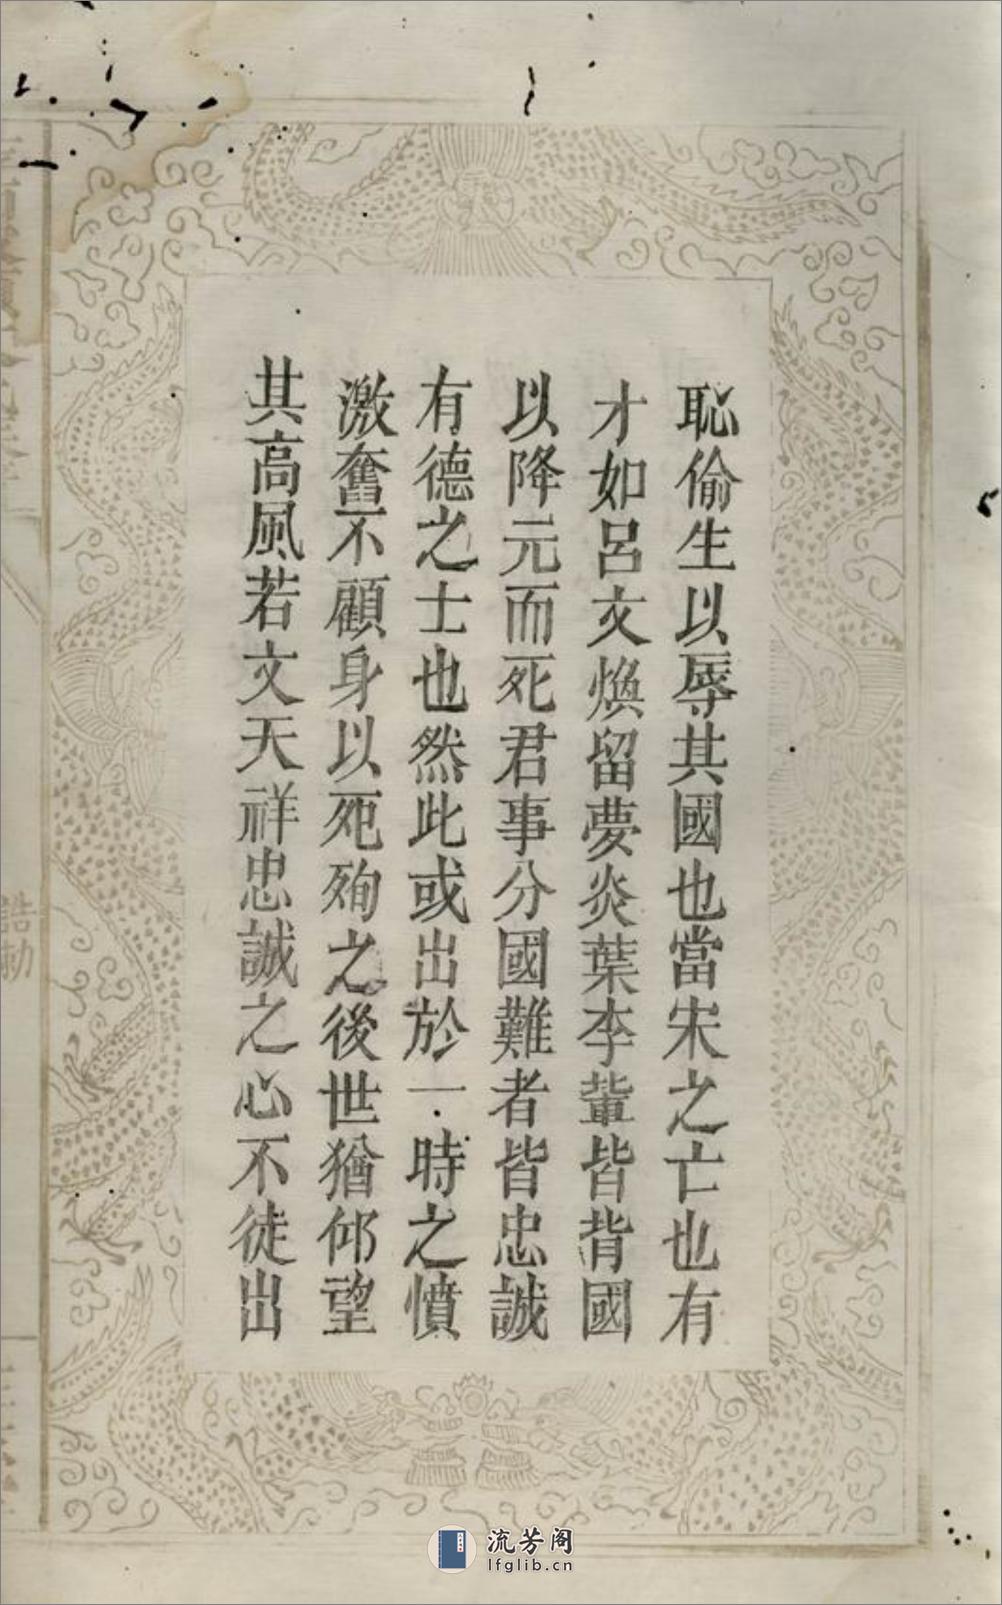 恥偷生以辱其國也當宋之亡也有
才如呂文煥留夢炎葉李輩皆背國
以降元而死君事分國難者皆忠誠
有德之士也然此或出於一時之憤
激奮不顧身以死殉之後世猶仰望
其高風若文天祥忠誠之心不徒出
誥勅
流芳阁
lfglib.cn